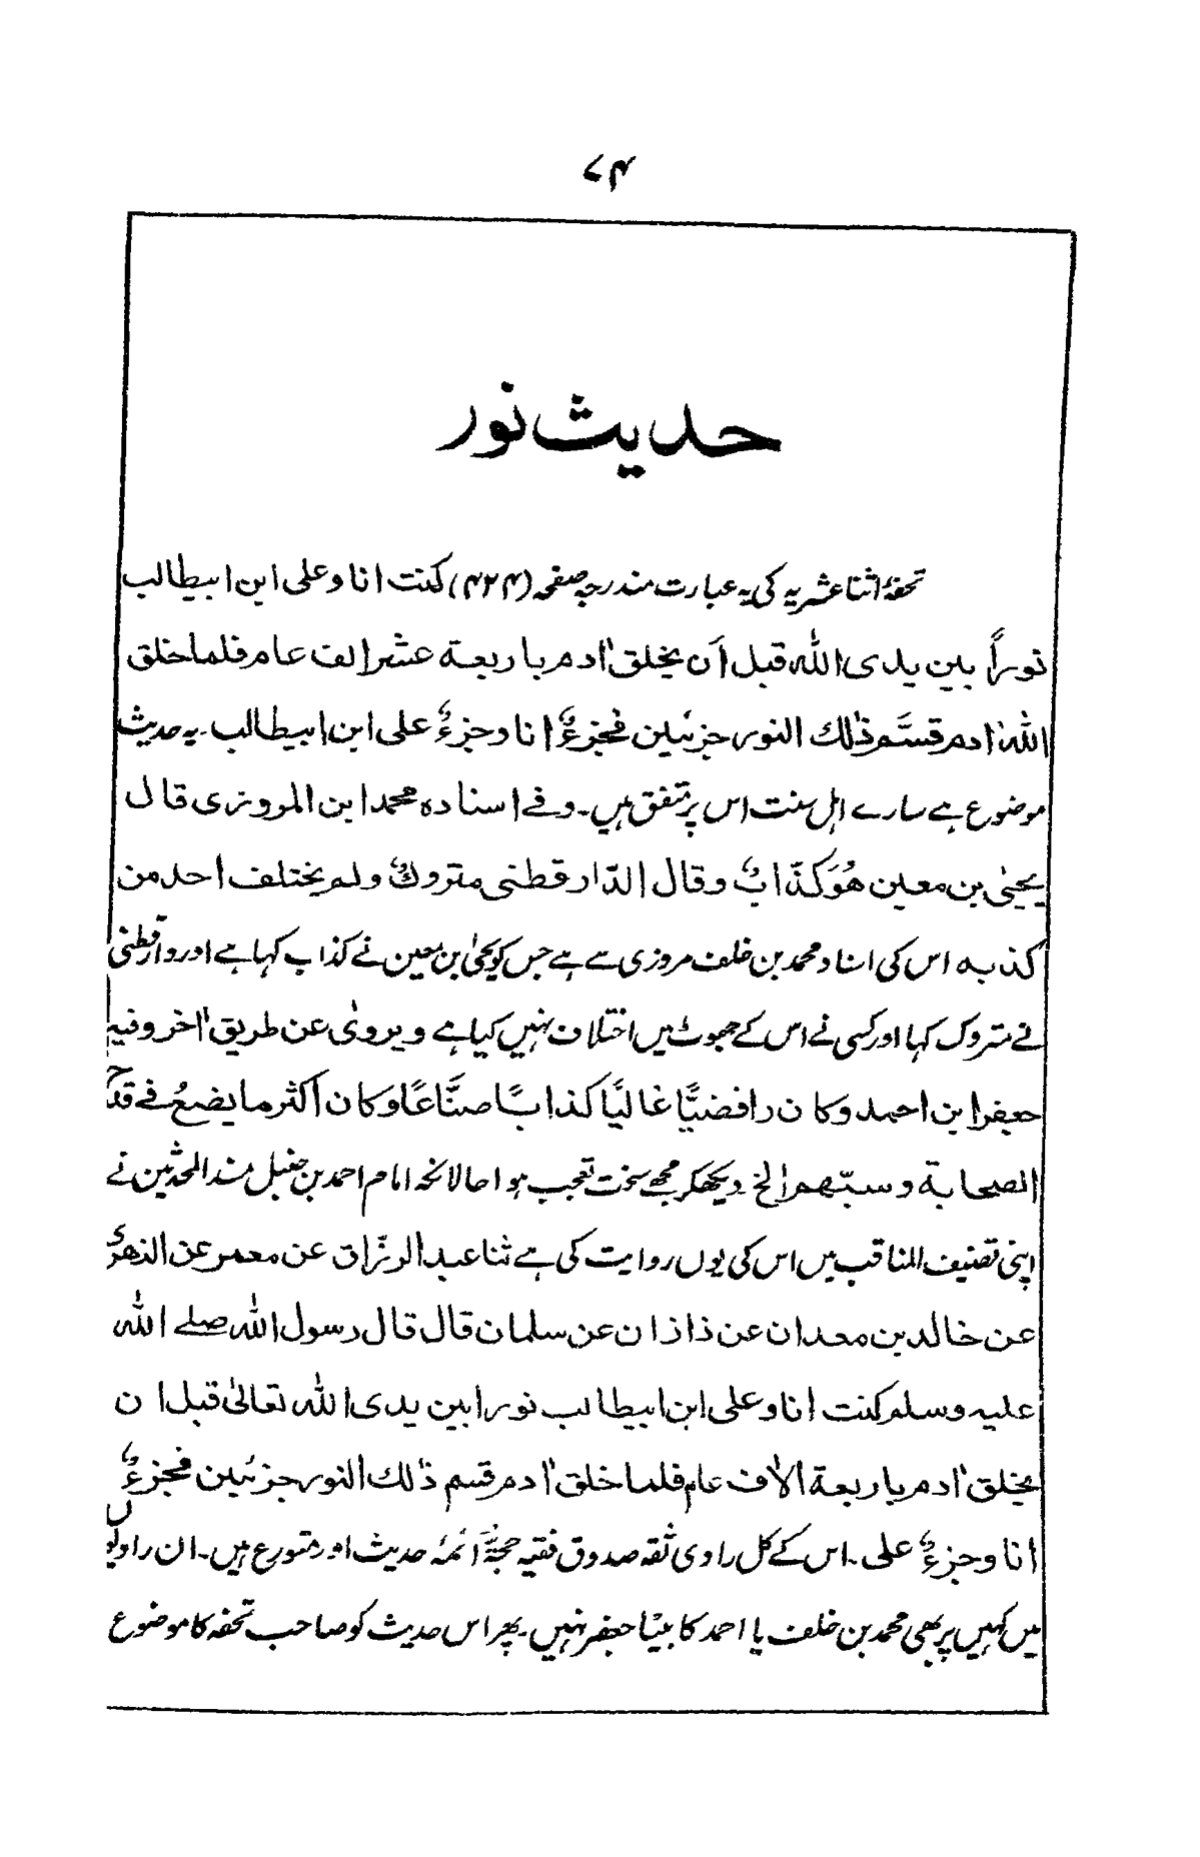 ۷۴
حدیث نور
تحفۂ اثنا عشریہ کی یہ عبارت مندرجہ صفحہ (۴۲۴) کنت انا و علی ابن ابیطالب
نوراً بین یدی اللہ قبل اَن یخلق اٰدم باربعۃ عشر الف عام فلما خلق
اللہ اٰدم قسَّم ذٰلک النور جزئین فجزءٌ انا وجزءٌ علی ابن ابیطالب۔ یہ حدیث
موضوع ہے سارے اہل سنت اس پر متفق ہیں۔ وفے اسنادہ محمد ابن المروزی قال
یحییٰ بن معین ھُوَ کذّابٌ وقال الدّارقطنی متروکٌ ولم یختلف احد من
کذبہ اس کی اسناد محمد بن خلف مروزی سے ہے جس کو یحیٰی بن معین نے کذاب کہا ہے اور دارقطنی
نے متروک کہا اور کسی نے اس کے جھوٹ میں اختلاف نہیں کیا ہے ویرویٰ عن طریق اٰخر وفیہ
جعفر ابن احمد وکان رافضیًّا غالیًا کذابًا صنَّاعًا وکان اکثر ما یضعُ فے قدح
الصحابۃ وسبّھم الخ دیکھکر مجھے سخت تعجب ہوا حالانکہ امام احمد بن حنبل مسند المحدثین نے
اپنی تصنیف المناقب میں اس کی یوں روایت کی ہے ثنا عبد الرزّاق عن معمر عن الزھری
عن خالد بن معدان عن ذاذان عن سلمان قال قال رسول اللہ صلے اللہ
علیہ وسلم کنت انا وعلی ابن ابیطالب نورا بین یدی اللہ تعالیٰ قبل ان
یخلق اٰدم باربعۃ اٰلاف عام فلما خلق اٰدم قسم ذٰلک النور جزئین فجزءٌ
انا وجزءٌ علی۔ اس کے کل راوی ثقہ صدوق فقیہ حجۃ ائمہ حدیث اور متورع ہیں۔ ان راویوں
میں کہیں پر بھی محمد بن خلف یا احمد کا بیٹا جعفر نہیں۔ پھر اس حدیث کو صاحب تحفہ کا موضوع